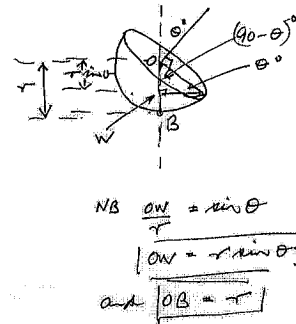 θ°
(90-θ)°
O
r
r sin θ
θ°
W
B
NB OW/r = sin θ
OW = r sin θ
and OB = r